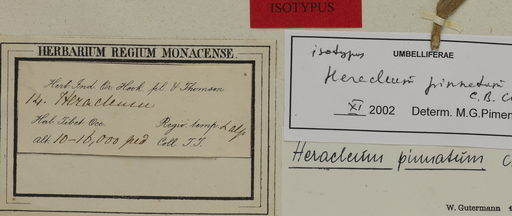 ISOTYPUS
HERBARIUM REGIUM MONACENSE
Herb. Ind. Or. Hook. fil. & Thomson
14. Heracleum
Hab. Tibet Occ. Regio temp. & alp.
alt. 10-16,000 ped Coll. T.T.
UMBELLIFERAE
isotypus
Heracleum pinnatum
C.B.
XI 2002 Determ. M.G.Pimen
Heracleum pinnatum C.
W. Gutermann